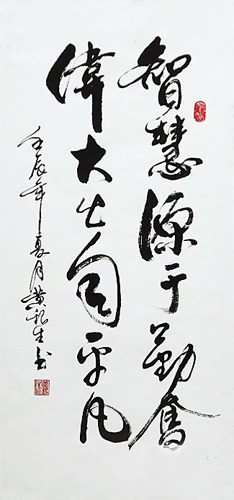 智慧源于勤奮
偉大出自平凡
壬辰年夏月黄生书